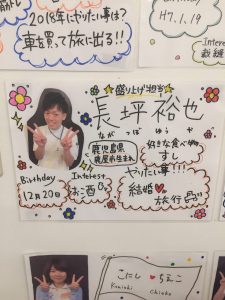 2018年にやりたい事は?
車買って旅に出る!!
H7.1.19
Interest
裁縫
☆盛り上げ担当☆
長坪裕也
ながつぼ ゆうや
鹿児島県
鹿屋市生まれ
好きな食べ物
すし
Birthday
12月20日
Interest
お酒
やりたい事!!!
結婚♥
旅行
こにし♥ちえこ
Konishi Chieko